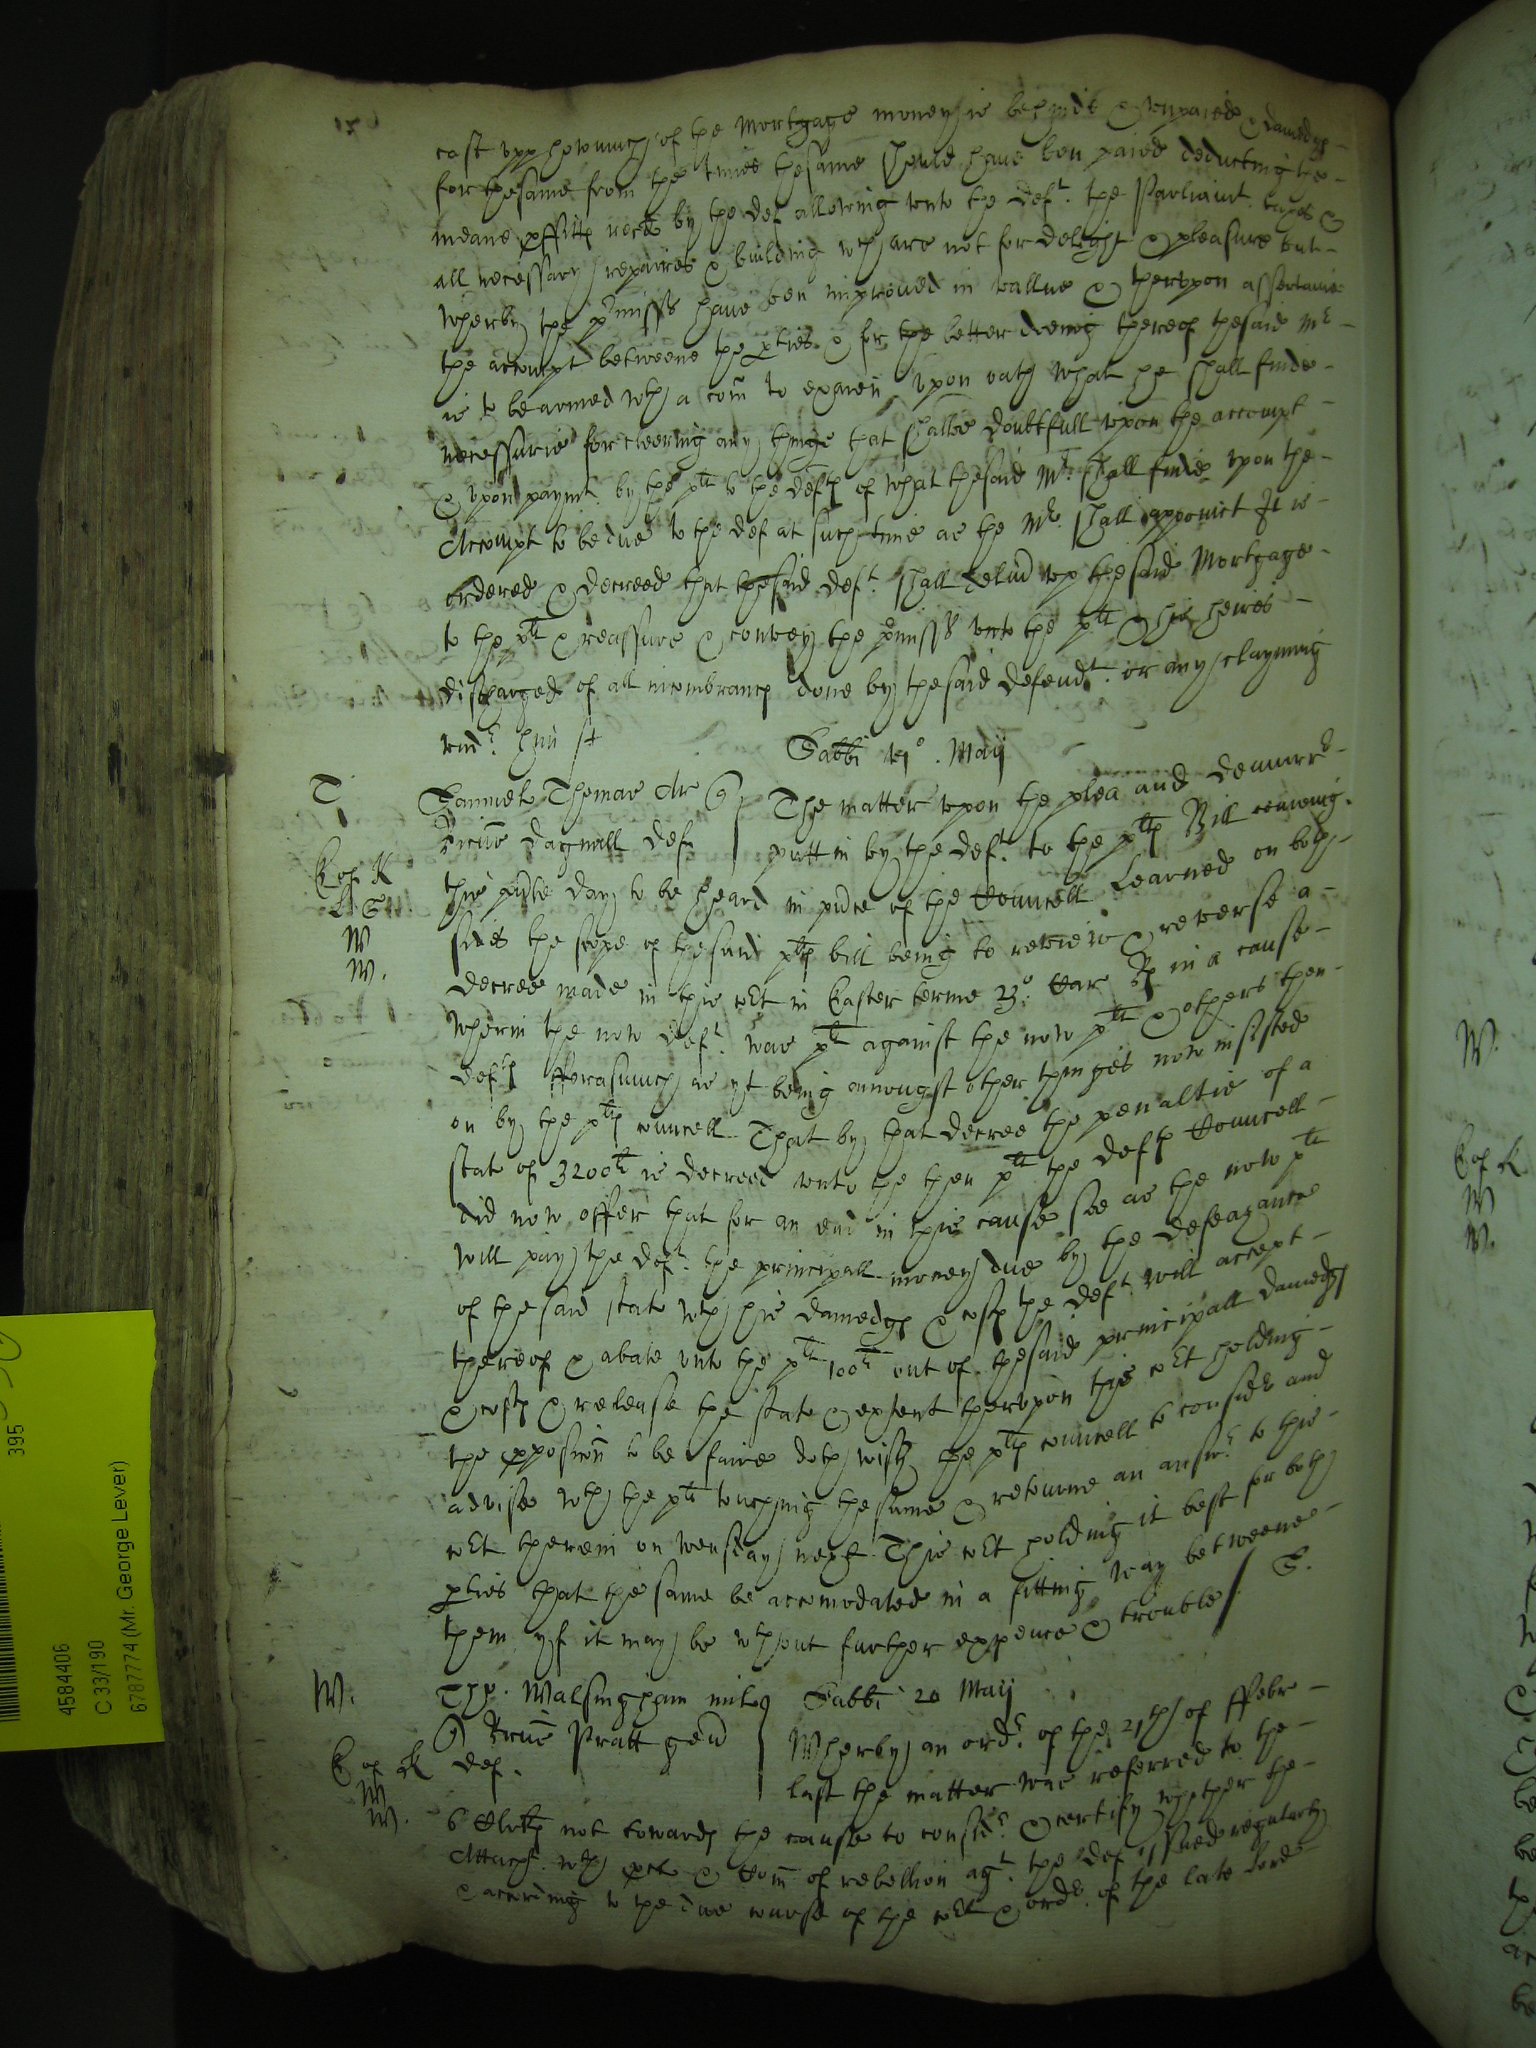 cast upp howmuch of the Mortgage money is behinde & unpaied & damadges
for thesame from the times thesame should have ben paied deducting the
meane proffitts recd by the def allowing unto the deft. the Parliamt. taxes &
all necessary repaires & building wch are not for delight & pleasure but
wherby the pmisss have ben improved in vallue & therupon assertaine
the accompt betweene the pties & for the better doeing thereof thesaid Mr
is to be armed wth a com to examin upon oath what he shall finde
necessarie for cleering any thinge that shalbe doubtfull upon the accompt
& upon paymt. by the plt to the defts of what thesaid Mr. shall finde upon the
Accompt to be due to the def at such time as the Mr. shall appoint It is
ordered & decreed that thesaid deft. shall deliv up thesaid Mortgage
to the plt & reassure & convey the pmisss unto the plt & his heires
discharged of all incombrancs done by thesaid defendt. or any clayming
undr. him
Sabbi . Maij
T
Samuel Thomas Ar
The matter upon the plea and demurrr
dagnall def
putt in by the deft. to the plts Bill comeing
this psente day to be heard in psence of the Councell Learned on both
sides the scope of thesaid plts bill being to reveiw & reverse a
decree made in this Cort in Easter terme 23o. Car Rs in a cause
wherin the now deft. was plt against the now plt & others then
defts fforasmuch as yt being amongst other thinges now insisted
on by the plts councell That by that decree the penaltie of a
statt of 3200li is decreed unto the then plt the defts Councell
did now offer that for an end in this cause soe as the now plt
will pay the deft. the principall money due by the defeazance
of thesaid statt wth his damadgs & costs the deft. will accept
thereof & abate unto the plt 100li out of thesaid principall damadgs
& costs & release the statt & extent therupon this Cort holding
the pposicon to be faire doth wish the plts councell to considr and
advise wth the plt touching thesame & retourne an answr. to this
Cort therein on wensday next This Cort holding it best for both
pties that the same be accomodated in a fitting way betweene
them yf it may be wthout further expence & trouble / S.
W.
Tho. Walsingham mil
Sabbi 20 Maij
Pratt gen
Wherby an ordr. of the 21th of ffebr
def.
last the matter was referred to the
6 Clerks not towards the cause to considr. & certify whether the
Attachmt. wth pcl & Com of rebellion agt. the def yssued regularly
& according to the due course of the Cort & ordr. of the late Lord
395
4584406
C 33/190
6787774 (Mr. George Lever)